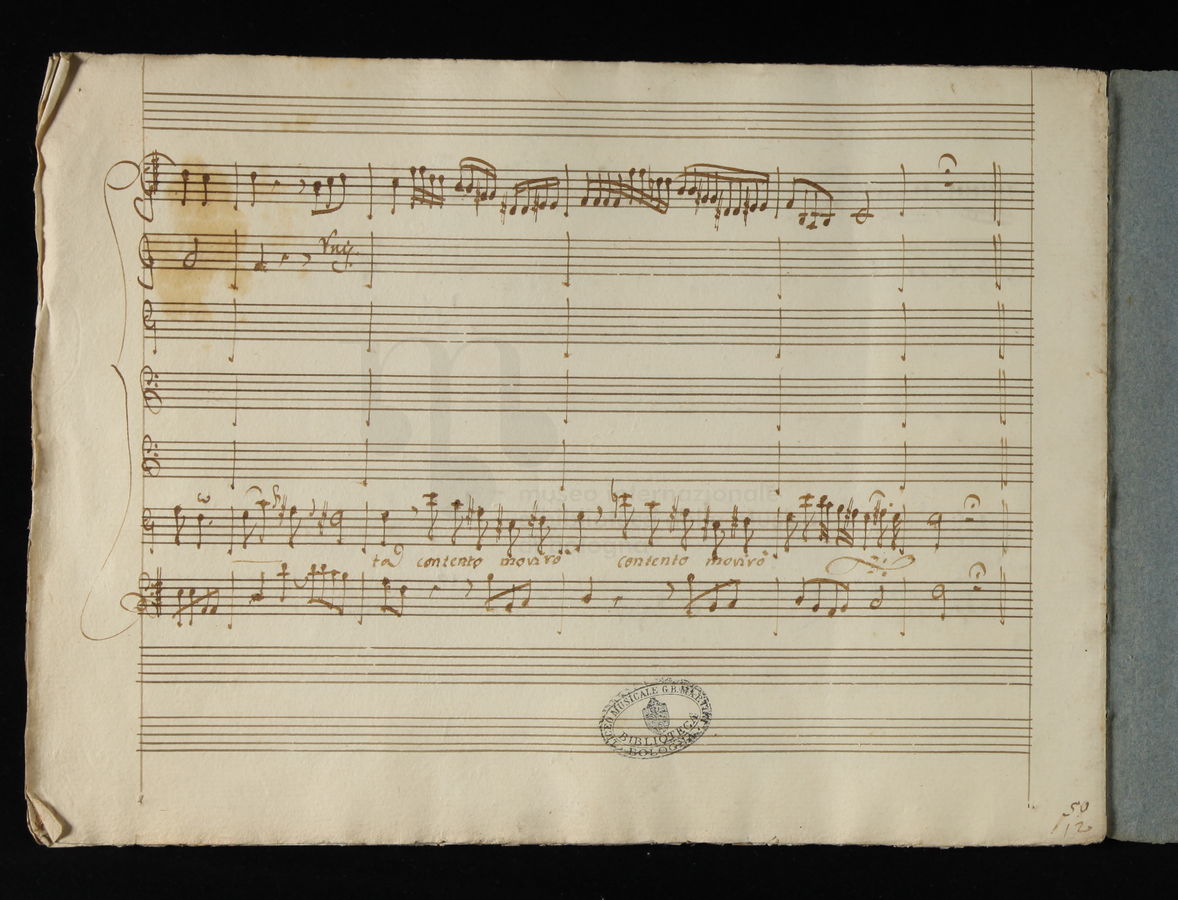 Vni:
museo internazionale
ta contento moviro contento moviro
LICEO MUSICALE G.B. MARTINI
BIBLIOTECA
BOLOGNA
50
12